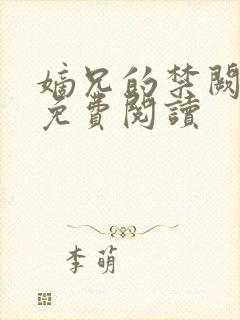 嫡兄的禁闕
免費閱讀
李萌